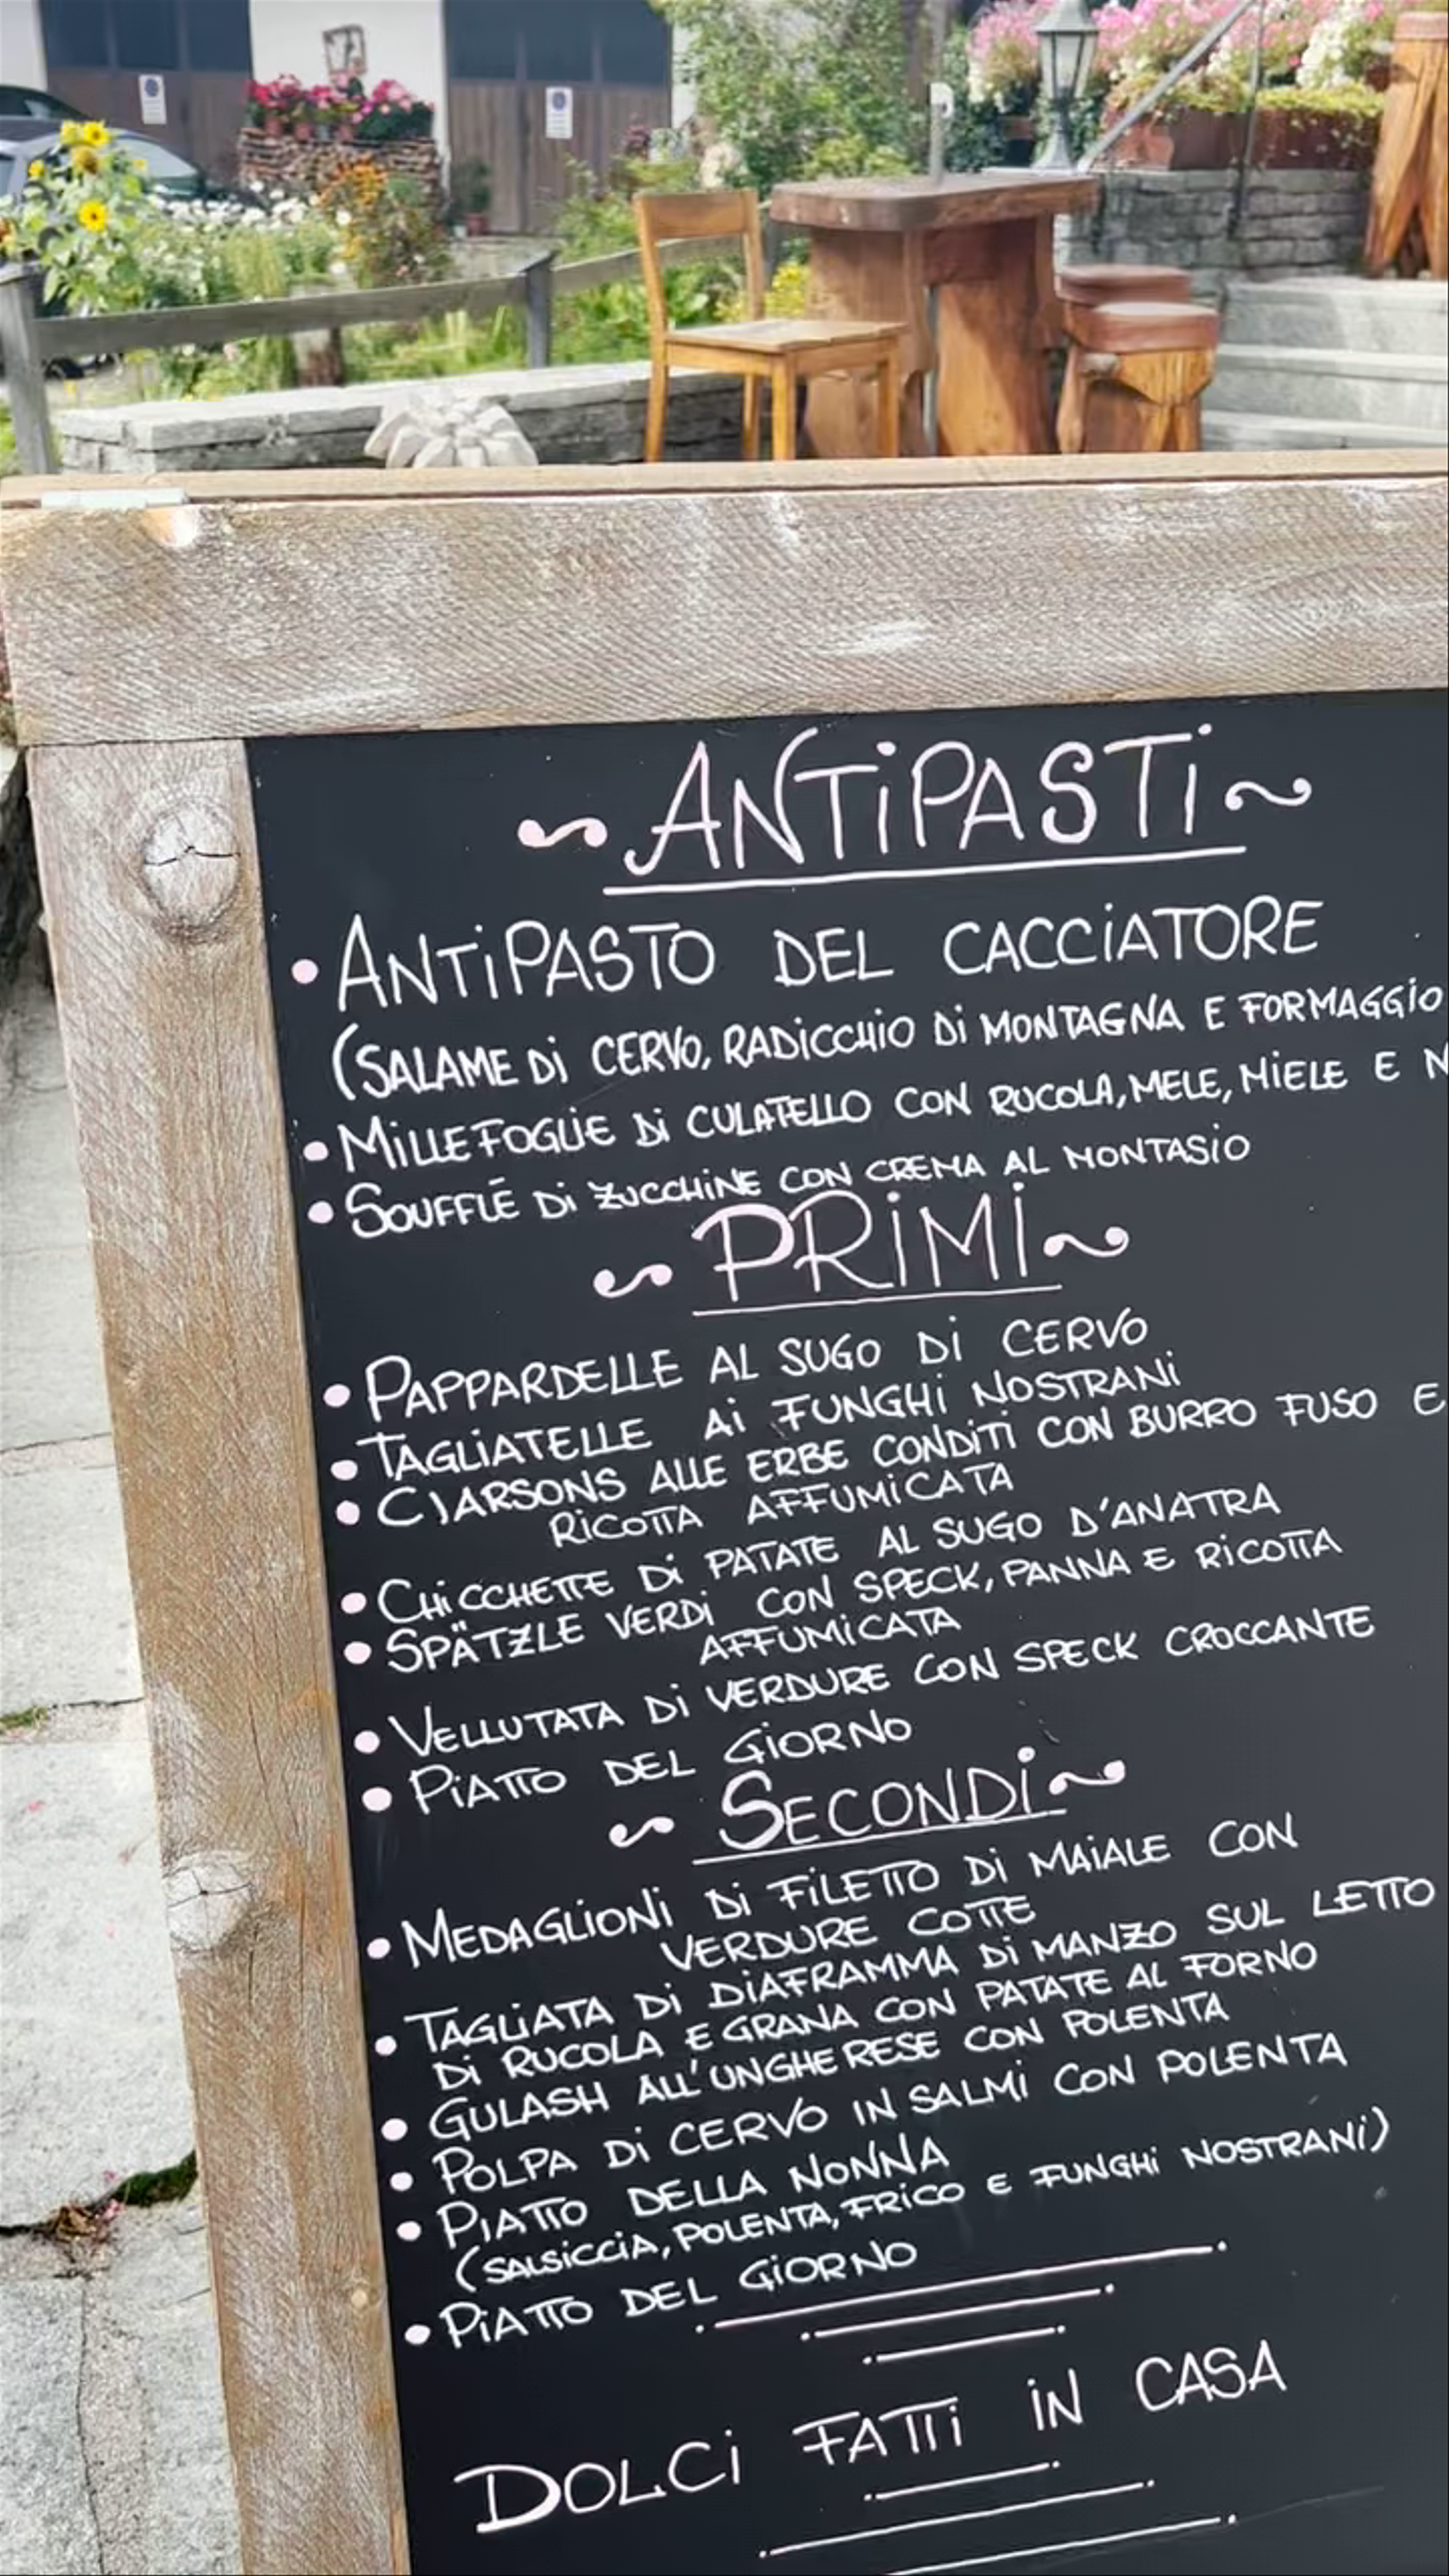 ANTIPASTI
• ANTIPASTO DEL CACCIATORE
(SALAME DI CERVO, RADICCHIO DI MONTAGNA E FORMAGGIO
• MILLEFOGLIE DI CULATELLO CON RUCOLA, MELE, MIELE E
• SOUFFLÉ DI ZUCCHINE CON CREMA AL MONTASIO
PRIMI
• PAPPARDELLE AL SUGO DI CERVO
• TAGLIATELLE AI FUNGHI NOSTRANI
• CJARSONS ALLE ERBE CONDITI CON BURRO FUSO E
RICOTTA AFFUMICATA
• CHICCHETTE DI PATATE AL SUGO D'ANATRA
• SPÄTZLE VERDI CON SPECK, PANNA E RICOTTA
AFFUMICATA
• VELLUTATA DI VERDURE CON SPECK CROCCANTE
• PIATTO DEL GIORNO
SECONDI
• MEDAGLIONI DI FILETTO DI MAIALE CON
VERDURE COTTE
• TAGLIATA DI DIAFRAMMA DI MANZO SUL LETTO
DI RUCOLA E GRANA CON PATATE AL FORNO
• GULASH ALL'UNGHERESE CON POLENTA
• POLPA DI CERVO IN SALMÌ CON POLENTA
• PIATTO DELLA NONNA
(SALSICCIA, POLENTA, FRICO E FUNGHI NOSTRANI)
• PIATTO DEL GIORNO
DOLCI FATTI IN CASA